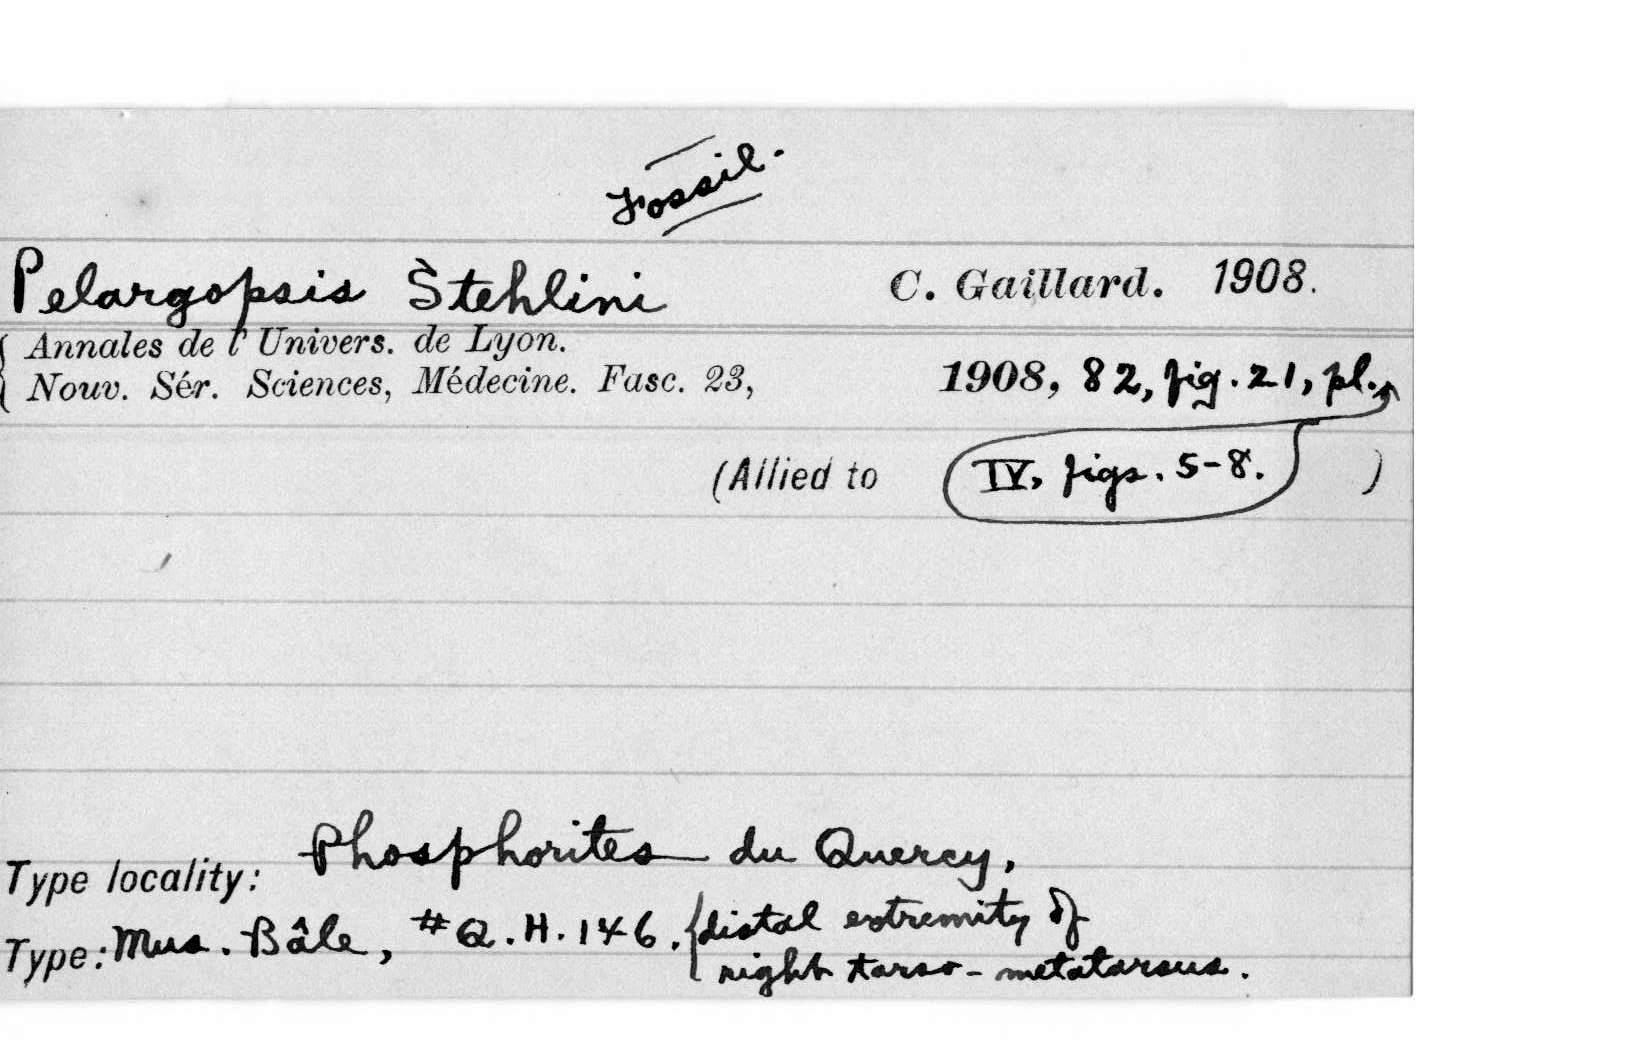 Fossil.
Pelargopsis Stehlini C. Gaillard. 1908.
Annales de l'Univers. de Lyon.
Nouv. Sér. Sciences, Médecine. Fasc. 23, 1908, 82, fig. 21, pl.
(Allied to IV, figs. 5-8. )
Type locality: Phosphorites du Quercy,
Type: Mus. Bâle, #Q.H.146. {distal extremity of
right tarso-metatarsus.